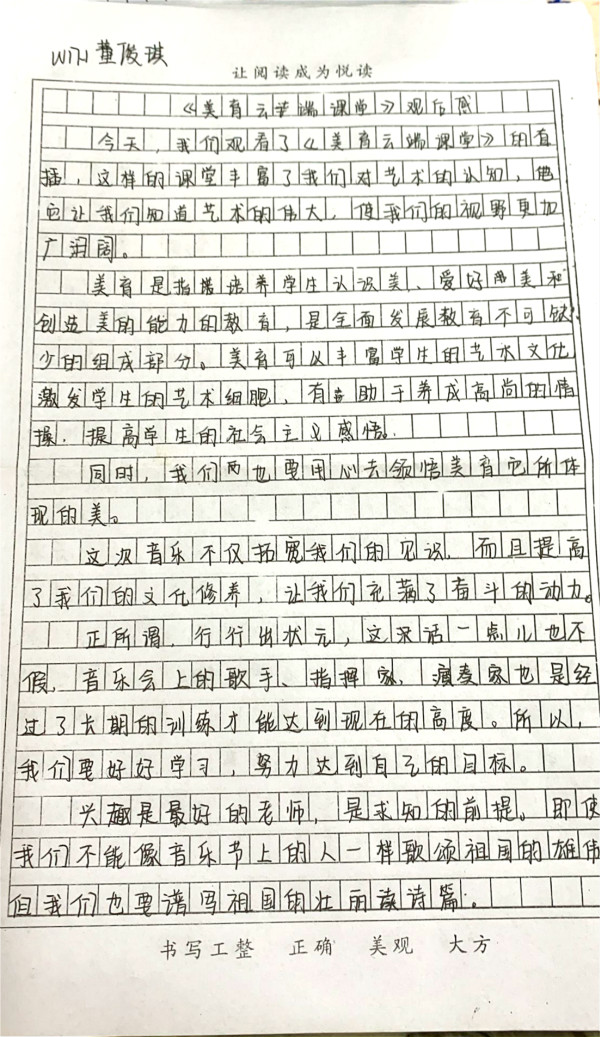 W171董俊琪
让阅读成为悦读
《美育云端课堂》观后感
今天,我们观看了《美育云端课堂》的直
播,这样的课堂丰富了我们对艺术的认知,他
它让我们知道艺术的伟大,使我们的视野更加
广润阔。
美育是指培养学生认识美、爱好美和
创造美的能力的教育,是全面发展教育不可缺
少的组成部分。美育可以丰富学生的艺术文化
激发学生的艺术细胞,有助于养成高尚的情
操,提高学生的社会主义感悟。
同时,我们也要用心去领悟美育它所体
现的美。
这次音乐不仅拓宽我们的见识,而且提高
了我们的文化修养,让我们充满了奋斗的动力。
正所谓,行行出状元,这话一点儿也不
假,音乐会上的歌手、指挥家、演奏家也是经
过了长期的训练才能达到现在的高度。所以,
我们要好好学习,努力达到自己的目标。
兴趣是最好的老师,是求知的前提。即使
我们不能像音乐节上的人一样歌颂祖国的雄伟
但我们也要谱写祖国的壮丽诗篇。
书写工整 正确 美观 大方